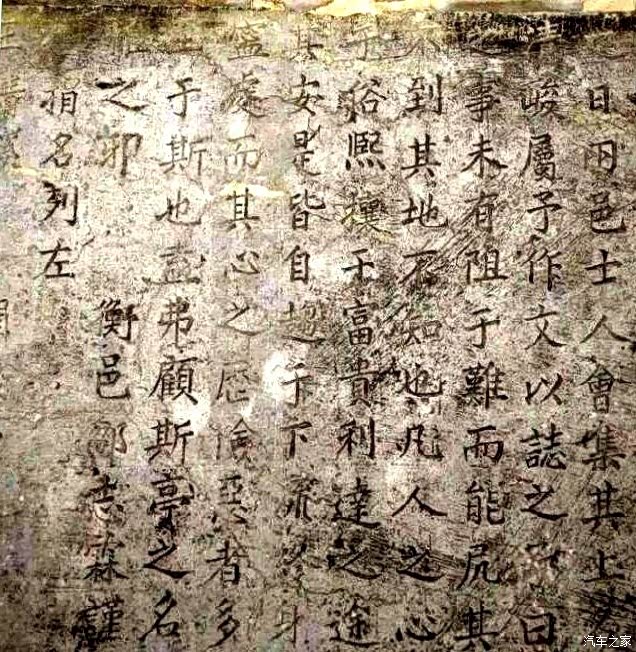 日冈邑士人會集其上
峻屬予作文以誌之曰
事未有阻于難而能尻其
不到其地不知也凡人之心
于俗熙攘于富貴利達之途
其安是皆自趨于下流
寧處而其心之歴險惡者多
于斯也盍弗顧斯亭之名
之邪 衡邑鄒志霖謹
捐名列左
汽车之家